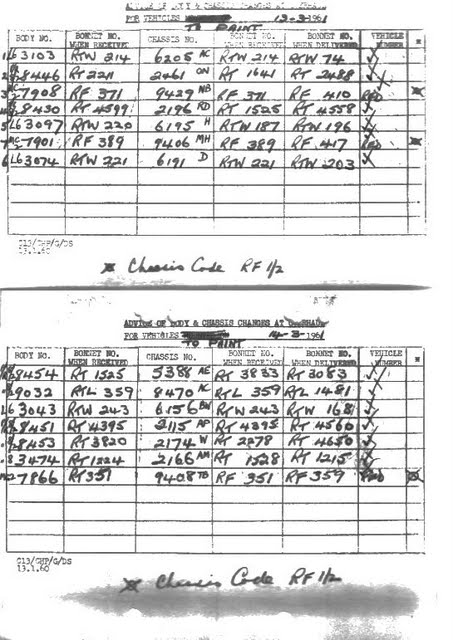 ADVICE OF BODY & CHASSIS CHANGES AT
FOR VEHICLES 13-3-1961
TO PAINT
BODY NO. BONNET NO. WHEN RECEIVED CHASSIS NO. BONNET NO. WHEN RECEIVED BONNET NO. WHEN DELIVERED VEHICLE NUMBER
L63103 RTW 214 6205 AC RTW 214 RTW 74 ✓
8446 RT 2211 2461 ON RT 1641 RT 2488 ✓
7908 RF 371 9429 NB RF 371 RF 410 RED
8430 RT 4599 2196 RD RT 1525 RT 4558 ✓
L63097 RTW 220 6195 H RTW 187 RTW 196
7901 RF 389 9406 MH RF 389 RF 417 RED
L63074 RTW 221 6191 D RTW 221 RTW 203
G13/CHP/G/DS
13.1.60
Chassis Code RF 1/2
ADVICE OF BODY & CHASSIS CHANGES AT
FOR VEHICLES 14-3-1961
TO PAINT
BODY NO. BONNET NO. WHEN RECEIVED CHASSIS NO. BONNET NO. WHEN RECEIVED BONNET NO. WHEN DELIVERED VEHICLE NUMBER
8454 RT 1525 5388 AE RT 3833 RT 3083 ✓
9032 RTL 359 8470 AC RTL 359 RTL 1481 ✓
L63043 RTW 243 6156 BW RTW 243 RTW 168 ✓
8451 RT 4395 2115 AP RT 4395 RT 4560 ✓
8453 RT 3820 2174 W RT 2878 RT 4650 ✓
83474 RT 1224 2166 AM RT 1528 RT 1215 ✓
7866 RT 351 9408 TB RF 351 RF 359 RED
G13/CHP/G/DS
13.1.60
Chassis Code RF 1/2